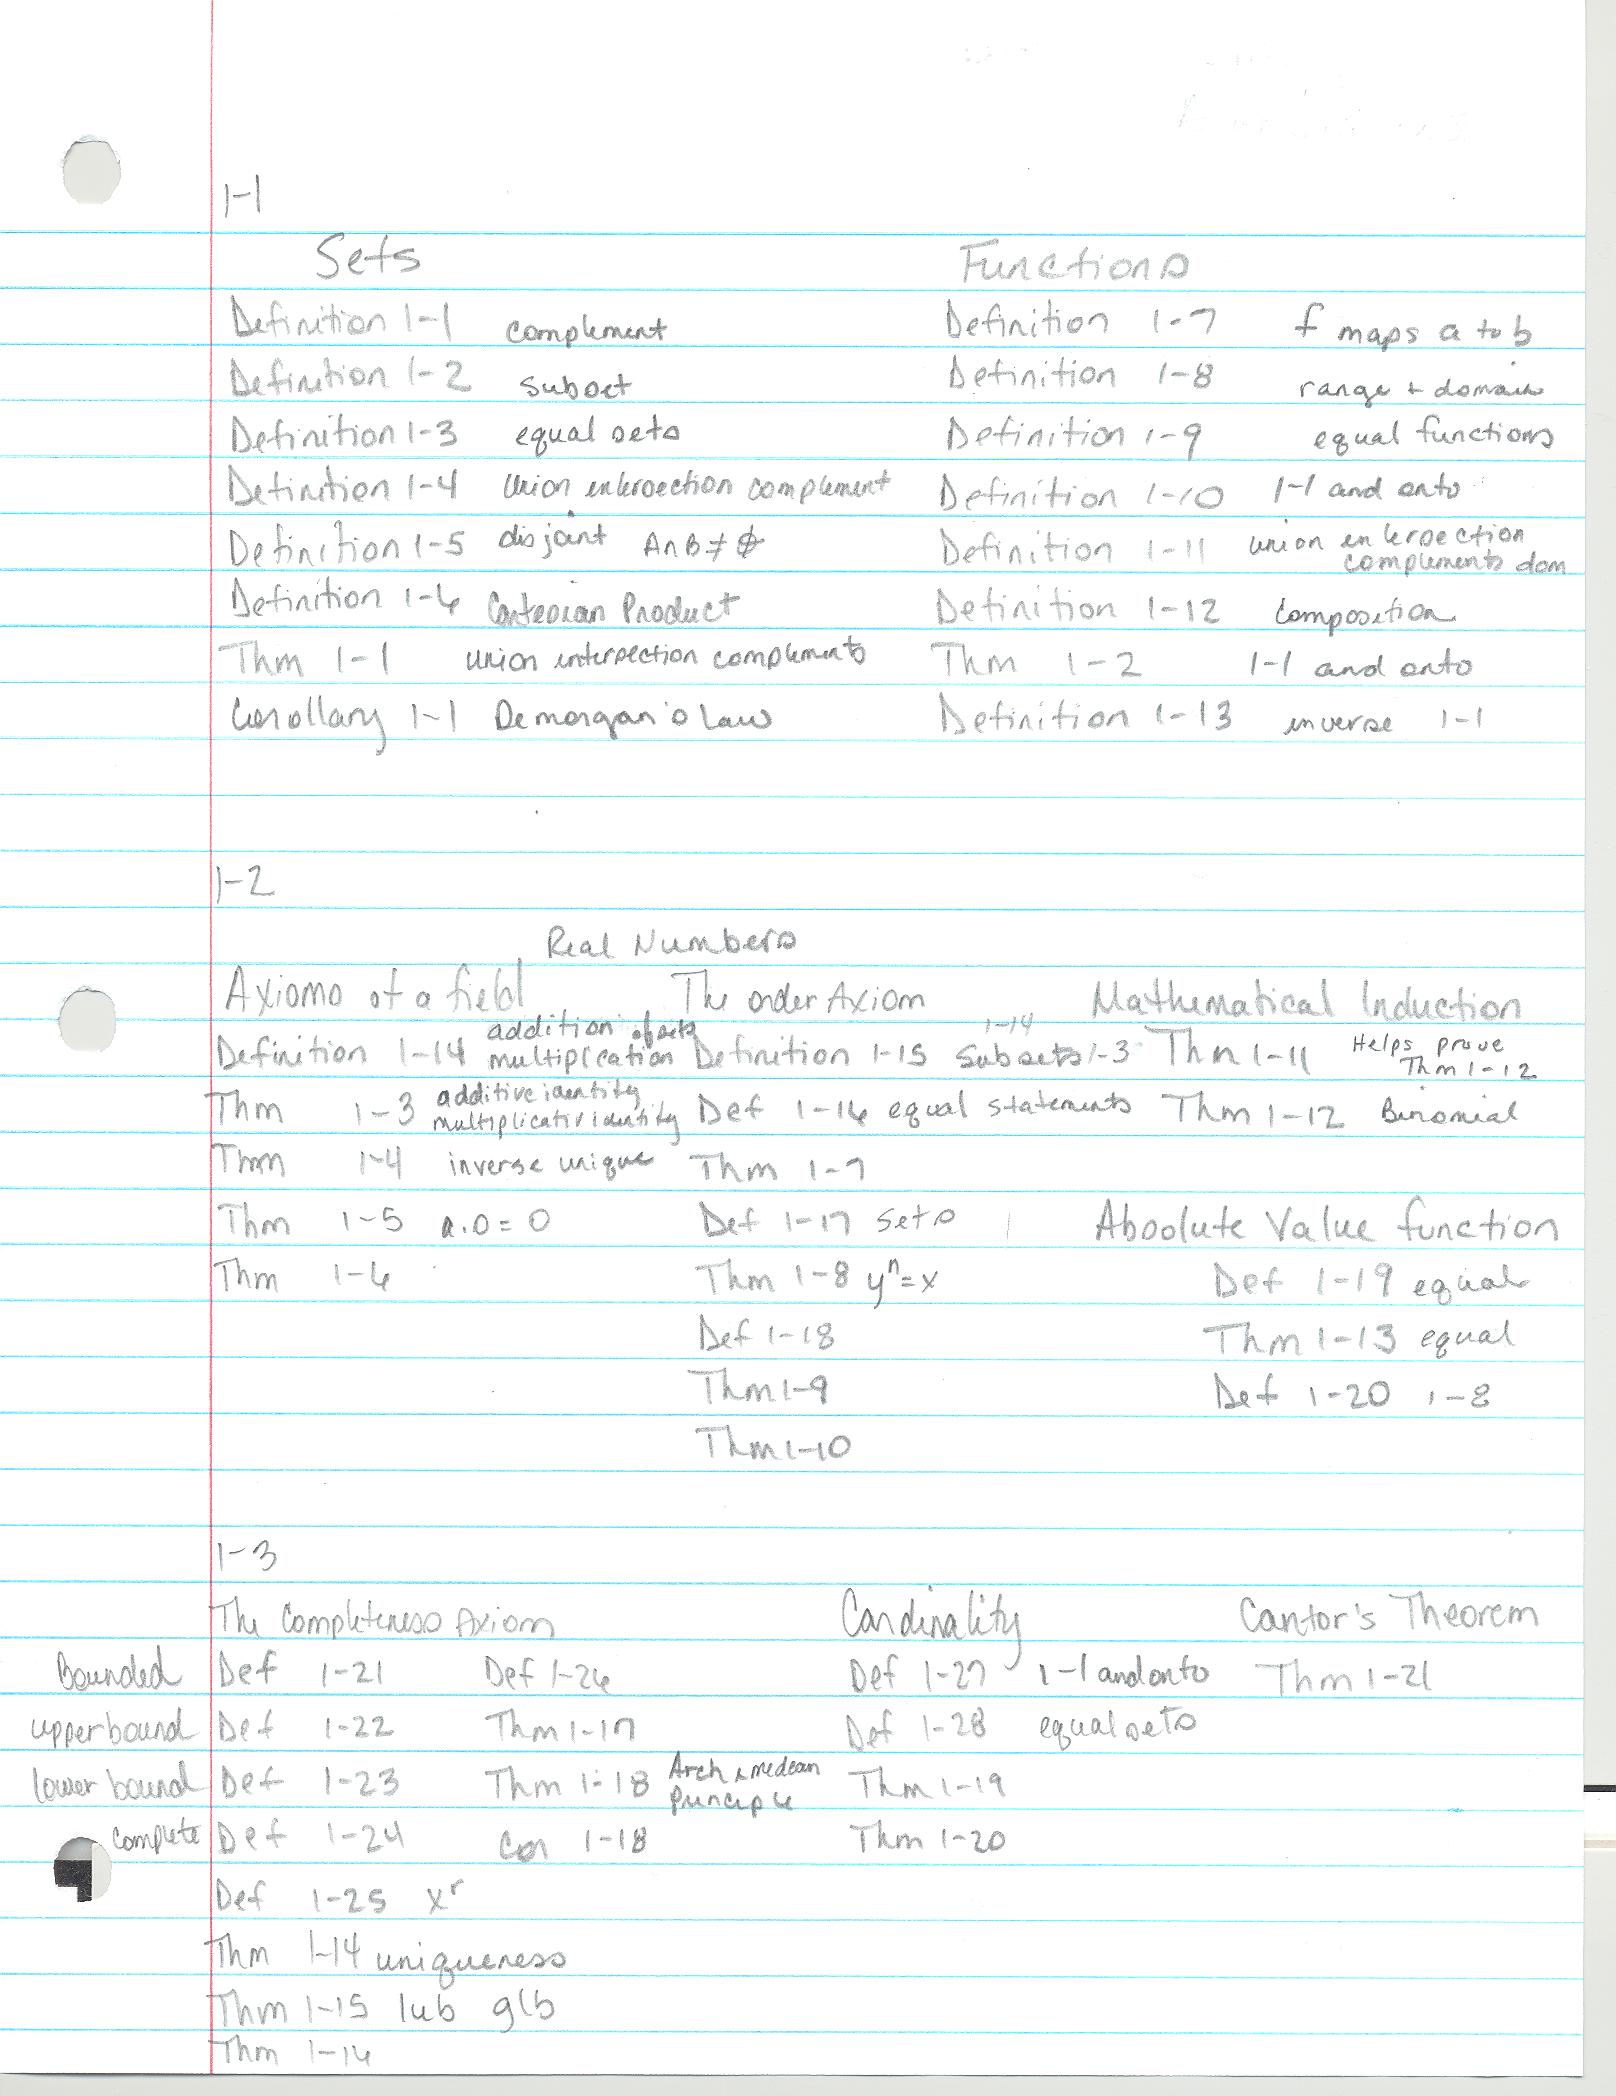 1-1
Sets Functions
Definition 1-1 complement Definition 1-7 f maps a to b
Definition 1-2 subset Definition 1-8 range + domain
Definition 1-3 equal sets Definition 1-9 equal functions
Definition 1-4 union intersection complement Definition 1-10 1-1 and onto
Definition 1-5 disjoint A∩B≠∅ Definition 1-11 union intersection complements dom
Definition 1-6 Cartesian Product Definition 1-12 composition
Thm 1-1 union intersection complements Thm 1-2 1-1 and onto
Corollary 1-1 Demorgan's Law Definition 1-13 inverse 1-1
1-2
Real Numbers
Axioms of a field The order Axiom Mathematical Induction
Definition 1-14 addition of sets multiplication Definition 1-15 subsets 1-14 1-3 Thm 1-11 Helps prove Thm 1-12
Thm 1-3 additive identity multiplicativ identity Def 1-16 equal statements Thm 1-12 Binomial
Thm 1-4 inverse unique Thm 1-7
Thm 1-5 a.0=0 Def 1-17 sets Absolute Value function
Thm 1-6 Thm 1-8 yⁿ=x Def 1-19 equal
Def 1-18 Thm 1-13 equal
Thm 1-9 Def 1-20 1-8
Thm 1-10
1-3
The Completeness Axiom Cardinality Cantor's Theorem
Bounded Def 1-21 Def 1-26 Def 1-27 1-1 and onto Thm 1-21
upper bound Def 1-22 Thm 1-17 Def 1-28 equal sets
lower bound Def 1-23 Thm 1-18 Archimedean Principle Thm 1-19
complete Def 1-24 Cor 1-18 Thm 1-20
Def 1-25 xʳ
Thm 1-14 uniqueness
Thm 1-15 lub glb
Thm 1-16